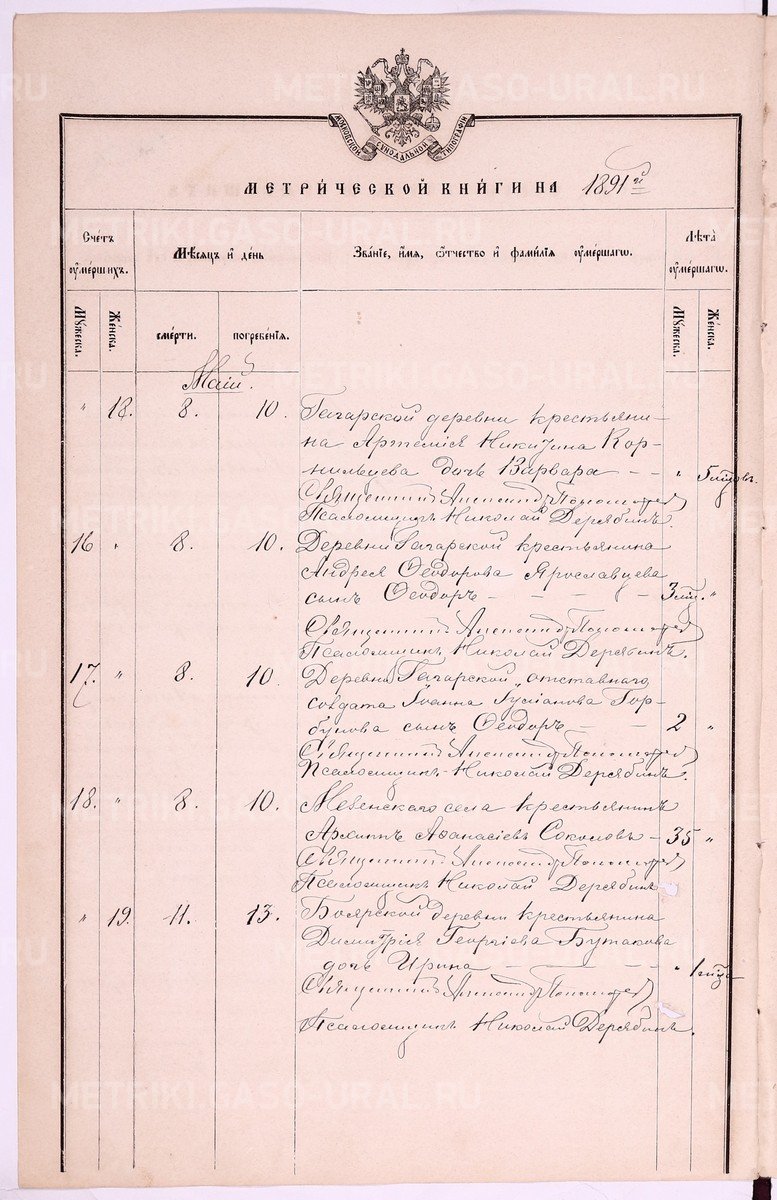 МОСКОВСКОЙ СѴНОДАЛЬНОЙ ТИПОГРАФІИ
МЕТРИ́ЧЕСКОЙ КНИ́ГИ НА 1891й
Сче́тъ оумершихъ.
Мѣсѧцъ и день
Зва́нїе, и́мѧ, ѻ҆́тчество и фами́лїѧ оуме́ршагѡ.
Лѣта̀ оуме́ршагѡ.
Мꙋжеска.
Же́нска.
сме́рти.
погребе́нїѧ.
Мꙋжеска.
Же́нска.
Май.
" 18. 8. 10. Гагарской деревни крестьяни-
на Артемія Никитина Кор-
нильцева дочь Варвара - - " 5 мѣсцовъ.
Священникъ Александръ Пономаревъ
Псаломщикъ Николай Дерябинъ.
16 " 8. 10. Деревни Гагарской крестьянина
Андрея Ѳеодорова Ярославцева
сынъ Ѳеодоръ - - - - 3 мѣс. "
Священникъ Александръ Пономаревъ
Псаломщикъ Николай Дерябинъ.
17. " 8. 10. Деревни Гагарской отставного
солдата Іоанна Гор-
бунова сынъ Ѳеодоръ - - 2 "
Священникъ Александръ Пономаревъ
Псаломщикъ Николай Дерябинъ.
18. " 8. 10. Мезенскаго села крестьянинъ
Архипъ Аѳанасіевъ Соколовъ - 35 "
Священникъ Александръ Пономаревъ
Псаломщикъ Николай Дерябинъ
" 19. 11. 13. Боярской деревни крестьянина
Димитрія Георгіева Бутакова
дочь Ирина - - - - " 1 года
Священникъ Александръ Пономаревъ
Псаломщикъ Николай Дерябинъ.
METRIKI.GASO-URAL.RU